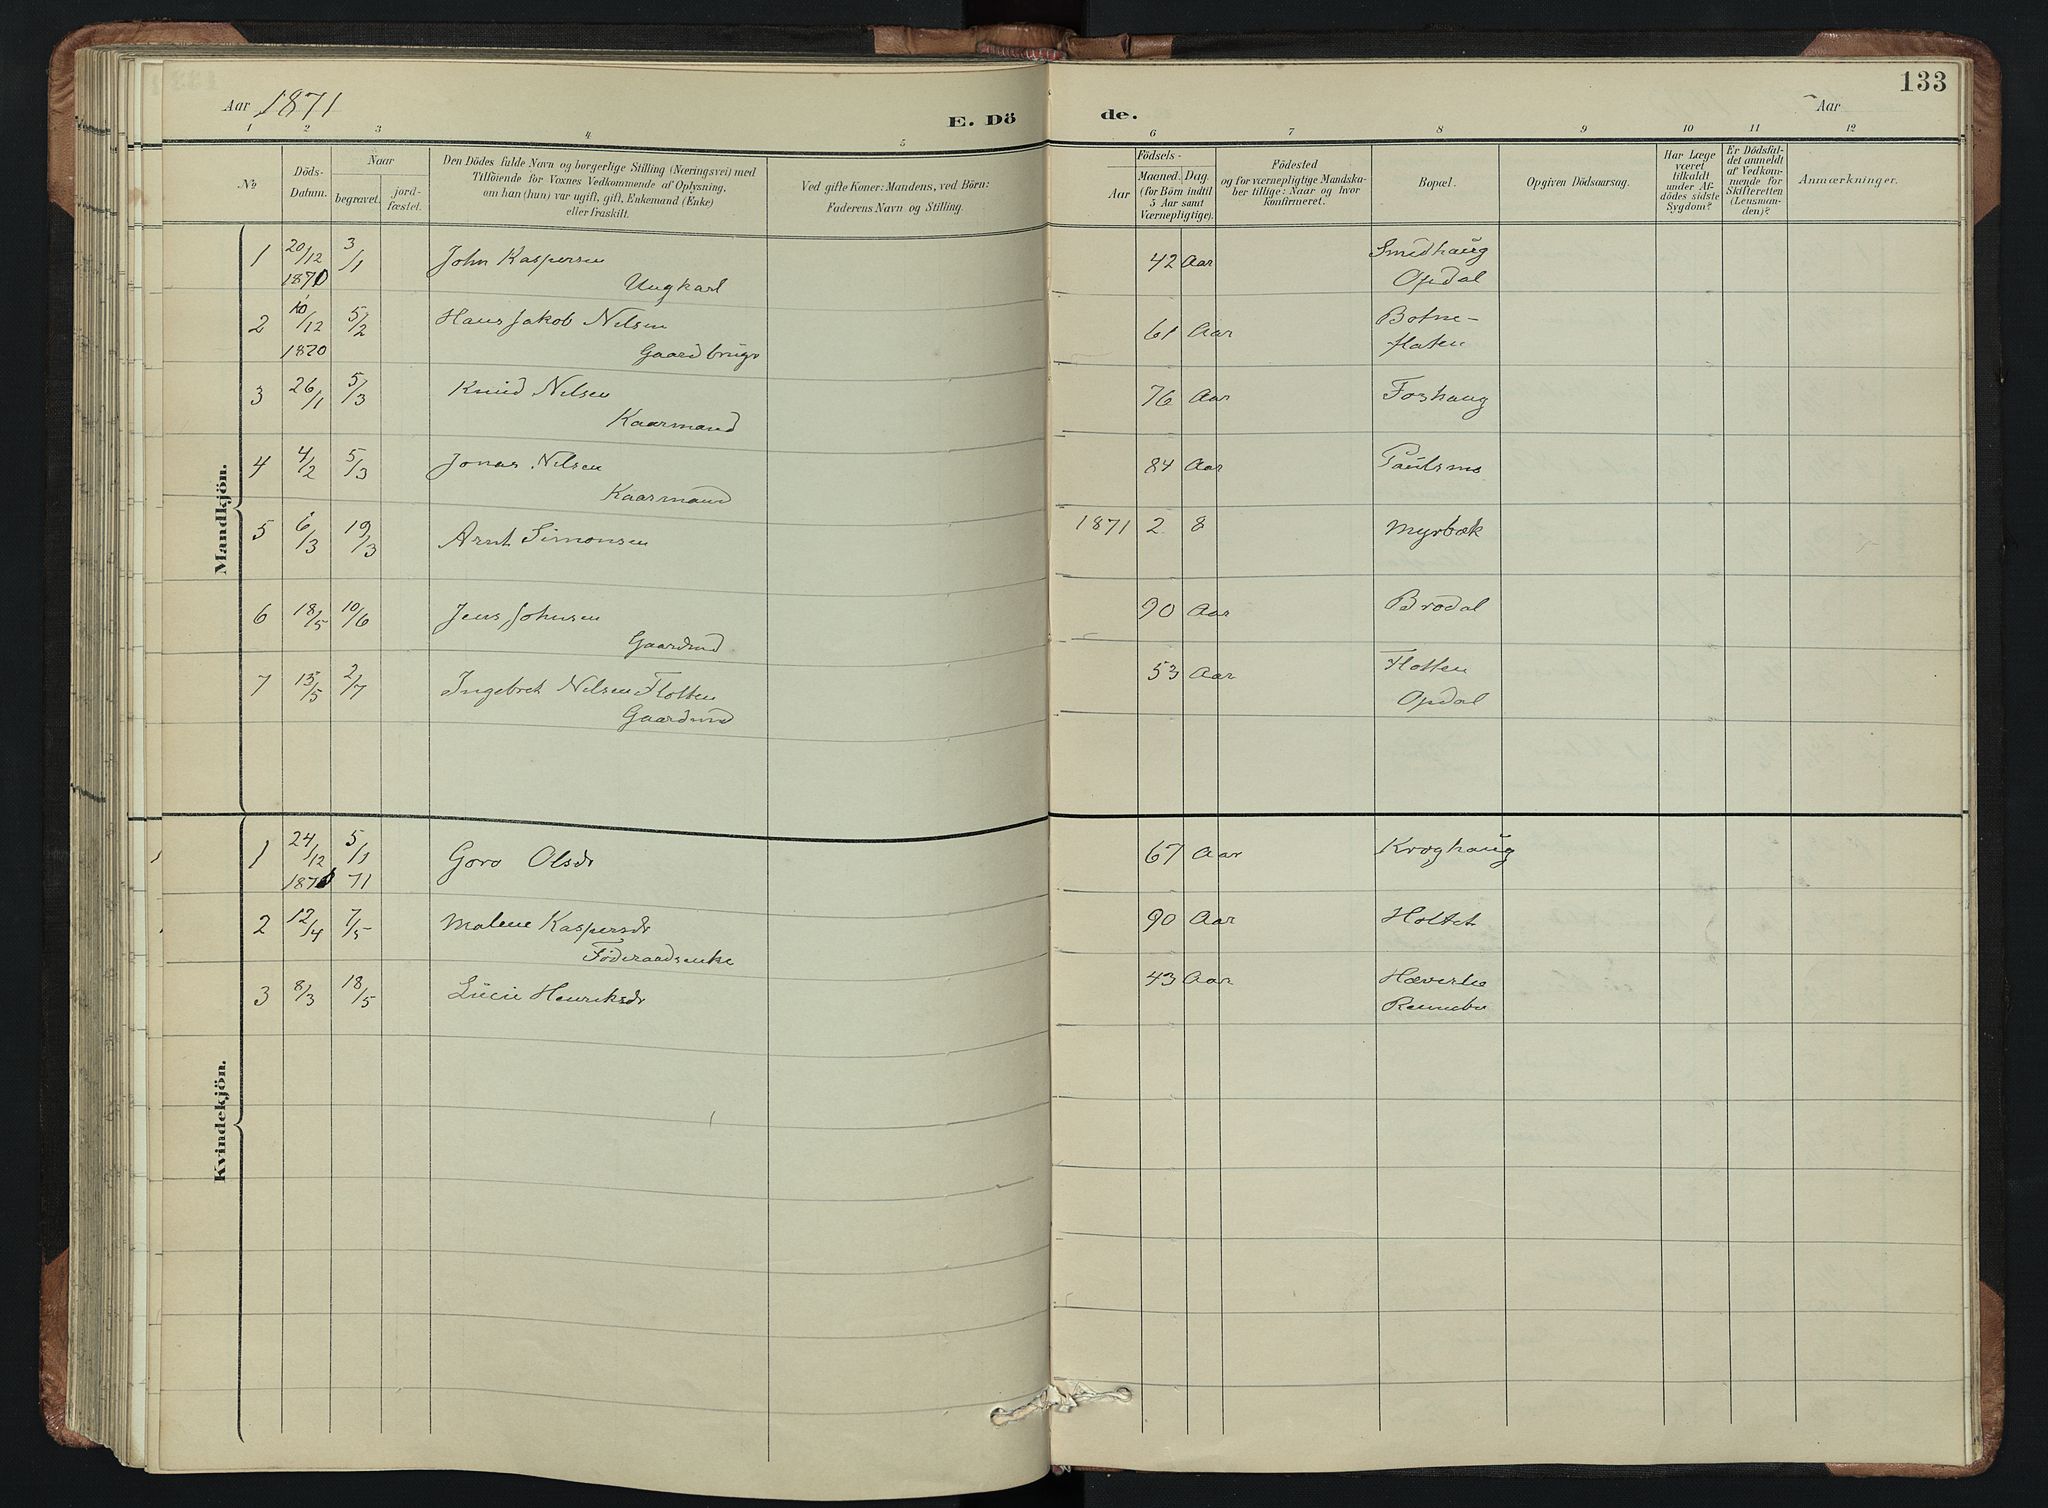 133
Aar 1871
E. Döde.
Aar
1 2 3 4 5 6 7 8 9 10 11 12
No
Döds-Datum.
Naar
begravet.
jord-fæstet.
Den Dödes fulde Navn og borgerlige Stilling (Næringsvei) med
Tilföiende for Voxnes Vedkommende af Oplysning,
om han (hun) var ugift, gift, Enkemand (Enke)
eller fraskilt.
Ved gifte Koner: Mandens, ved Börn:
Faderens Navn og Stilling.
Födsels-
Aar
Maaned. Dag
(for Börn indtil
5 Aar samt
Værnepligtige).
Födested
og for værnepligtige Mandska-
ber tillige: Naar og hvor
konfirmeret.
Bopæl.
Opgiven Dödsaarsag.
Har Læge
været
tilkaldt
under Af-
dödes sidste
Sygdom?
Er Dödsfal-
det anmeldt
af Vedkom-
mende for
Skifteretten
(Lensman-
den)?
Anmærkninger.
Mandkjön.
1 20/12 1870 3/1 John Kaspersen 42 Aar Smedhaug
Ungkarl Opdal
2 10/12 1870 5/2 Hans Jakob Nilsen 61 Aar Botne-
Gaardbrugr flaten
3 26/1 5/3 Knud Nilsen 76 Aar Foshaug
Kaarmand
4 4/2 5/3 Jonas Nilsen 84 Aar Paulsmo
Kaarmand
5 6/3 19/3 Arnt Simonsen 1871 2 8 Myrbæk
6 18/5 10/6 Jens Johnsen 90 Aar Brodal
Gaardmd
7 13/5 2/7 Ingebret Nilsen Flotten 53 Aar Flotten
Gaardmd Opdal
Kvindekjön.
1 24/12 1870 5/1 71 Goro Olsdr 67 Aar Kroghaug
2 12/4 7/5 Malene Kaspersdr 90 Aar Holtet
Föderaadsenke
3 8/3 18/5 Lucie Henriksdr 43 Aar Hæverlie
Rennebu